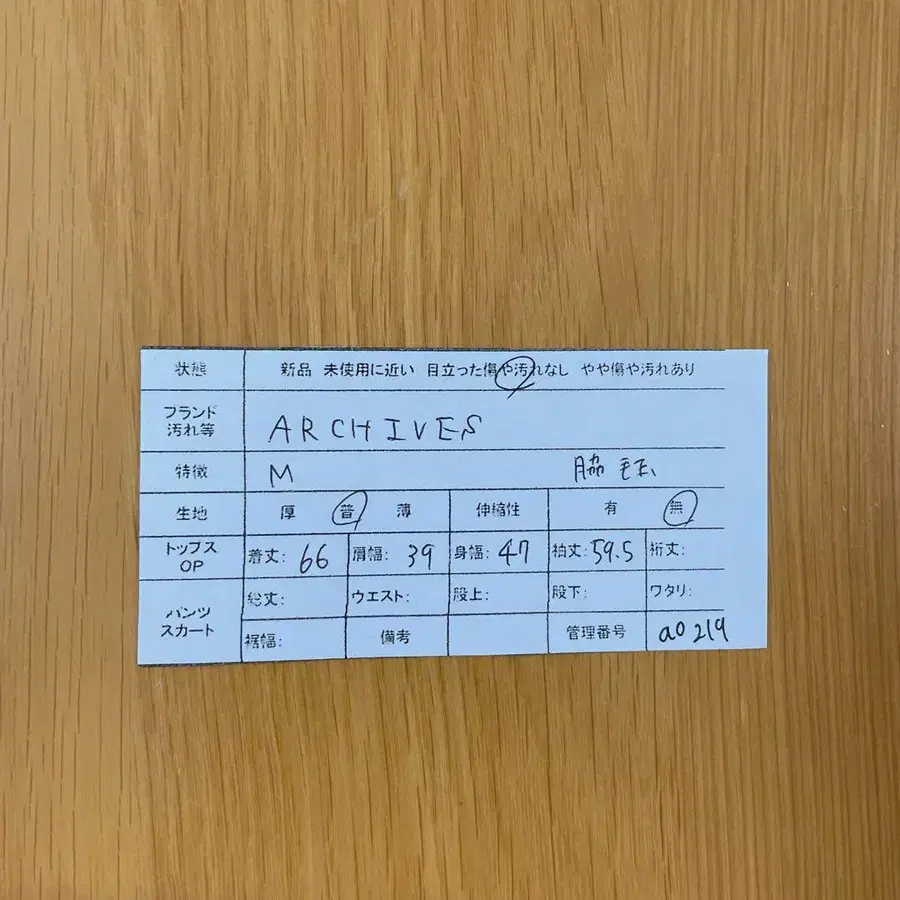 状態 新品 未使用に近い 目立った傷や汚れなし やや傷や汚れあり
ブランド
汚れ等
ARCHIVES
特徴 M 脇
生地 厚 普 薄 伸縮性 有 無
トップス
OP
着丈: 66 肩幅: 39 身幅: 47 袖丈: 59.5 裄丈:
パンツ
スカート
総丈: ウエスト: 股上: 股下: ワタリ:
裾幅: 備考 管理番号 a0219